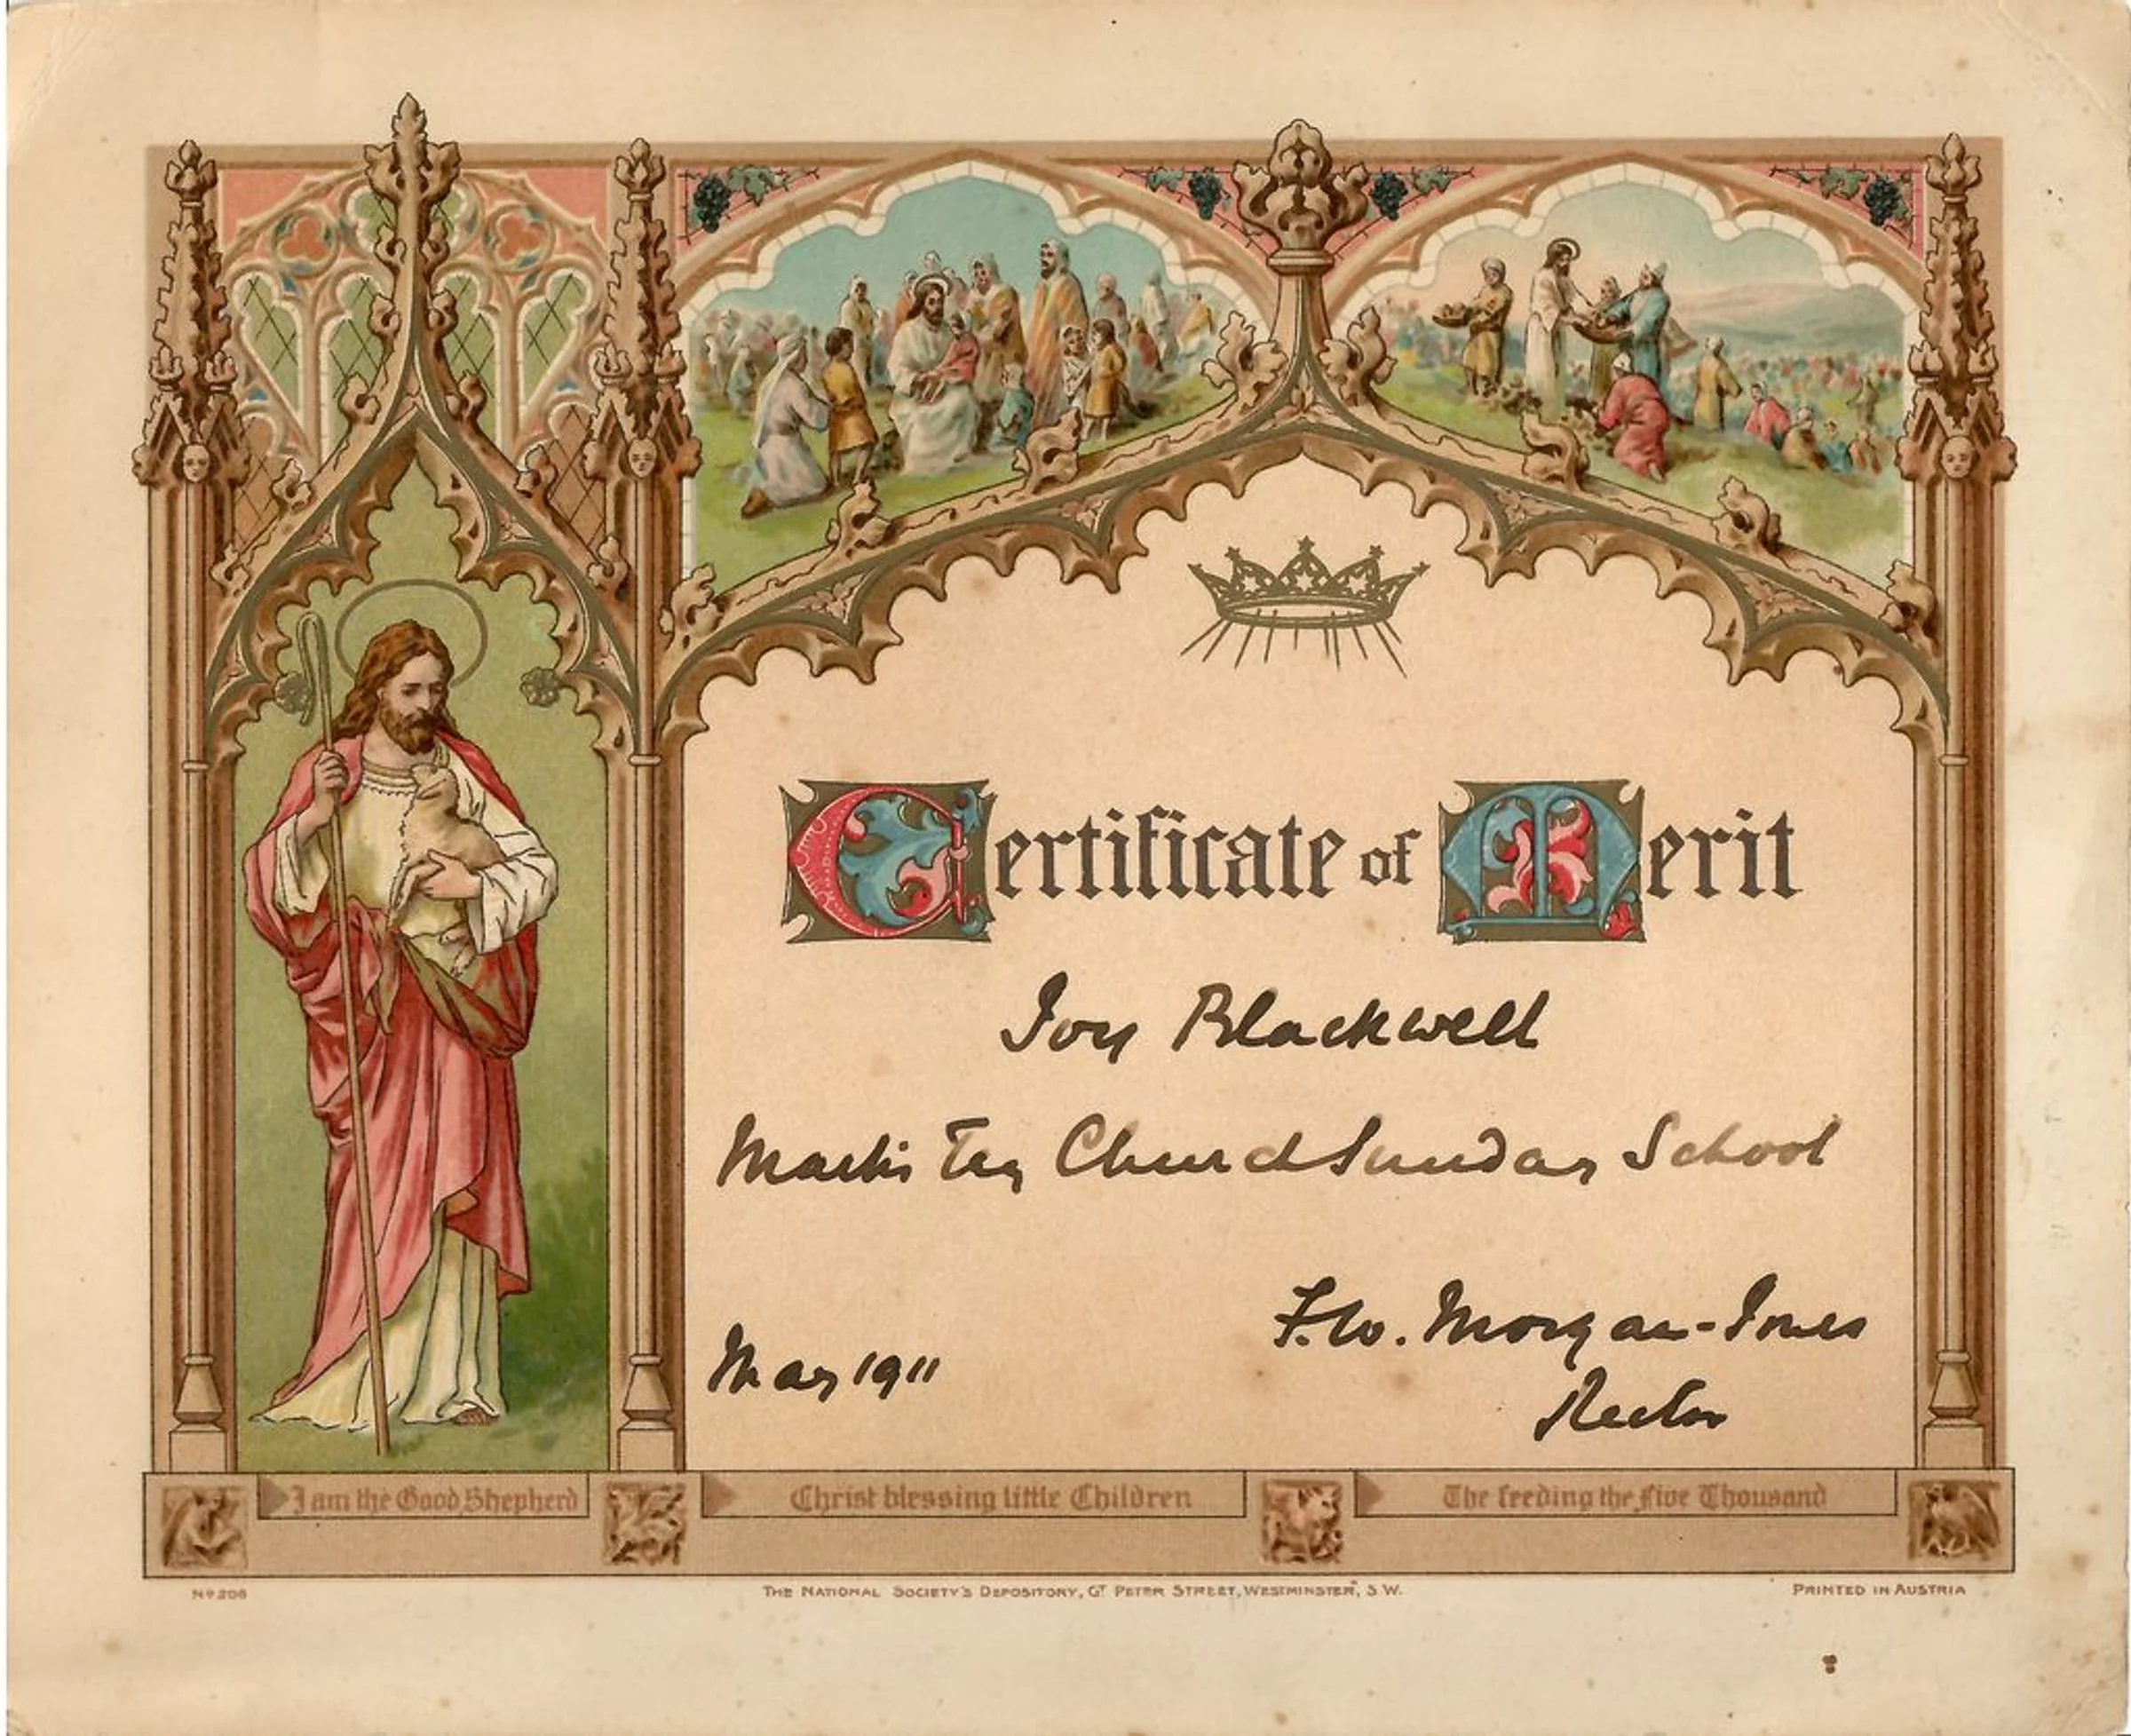 Certificate of Merit
Joy Blackwell
Marks Tey Church Sunday School
F.W. Morgan-Jones
May 1911
Rector
I am the Good Shepherd
Christ blessing little Children
The feeding the Five Thousand
No 208
THE NATIONAL SOCIETY'S DEPOSITORY, GT PETER STREET, WESTMINSTER, S.W.
PRINTED IN AUSTRIA